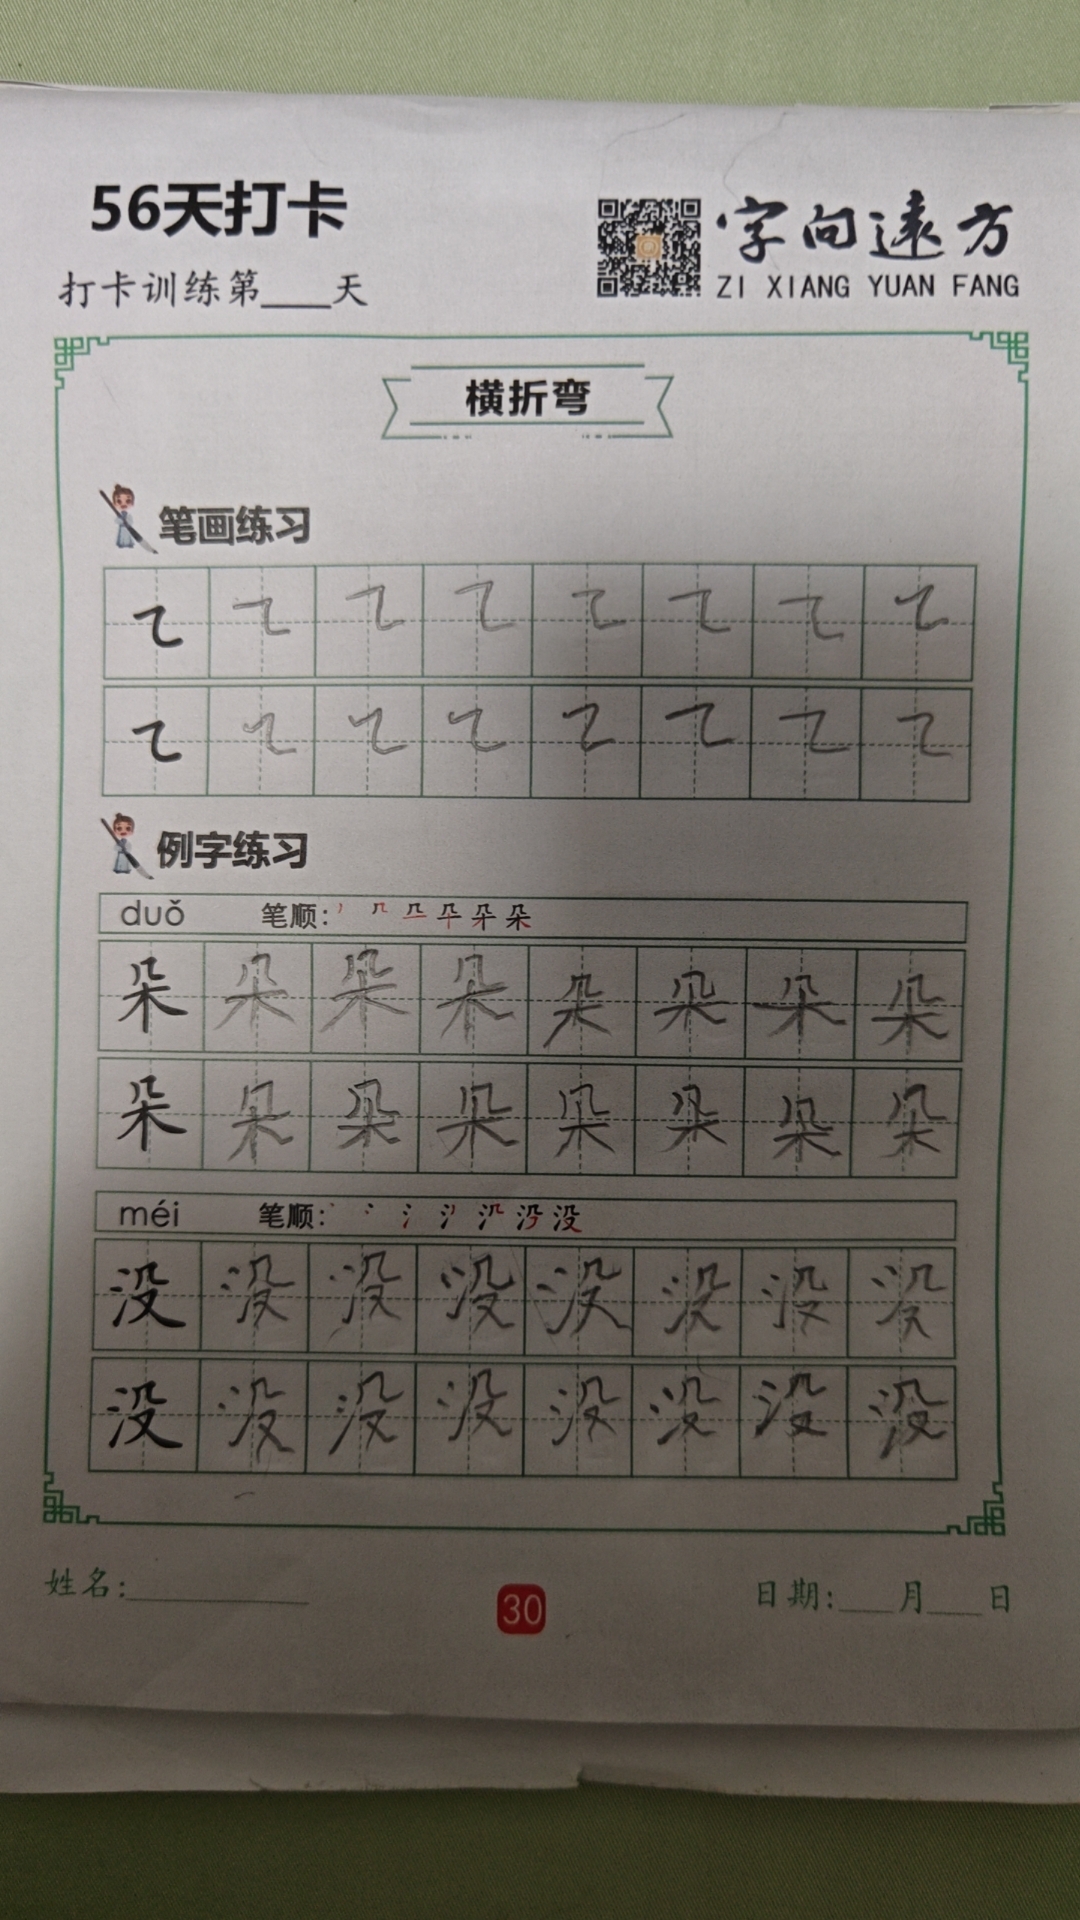 56天打卡
打卡训练第____天
字向远方
ZI XIANG YUAN FANG
横折弯
笔画练习
㇍ ㇍ ㇍ ㇍ ㇍ ㇍ ㇍ ㇍
㇍ ㇍ ㇍ ㇍ ㇍ ㇍ ㇍ ㇍
例字练习
duǒ 笔顺:
朵 朵 朵 朵 朵 朵 朵 朵
朵 朵 朵 朵 朵 朵 朵 朵
méi 笔顺:
没 没 没 没 没 没 没 没
没 没 没 没 没 没 没 没
姓名:__________ 30 日期:___月___日